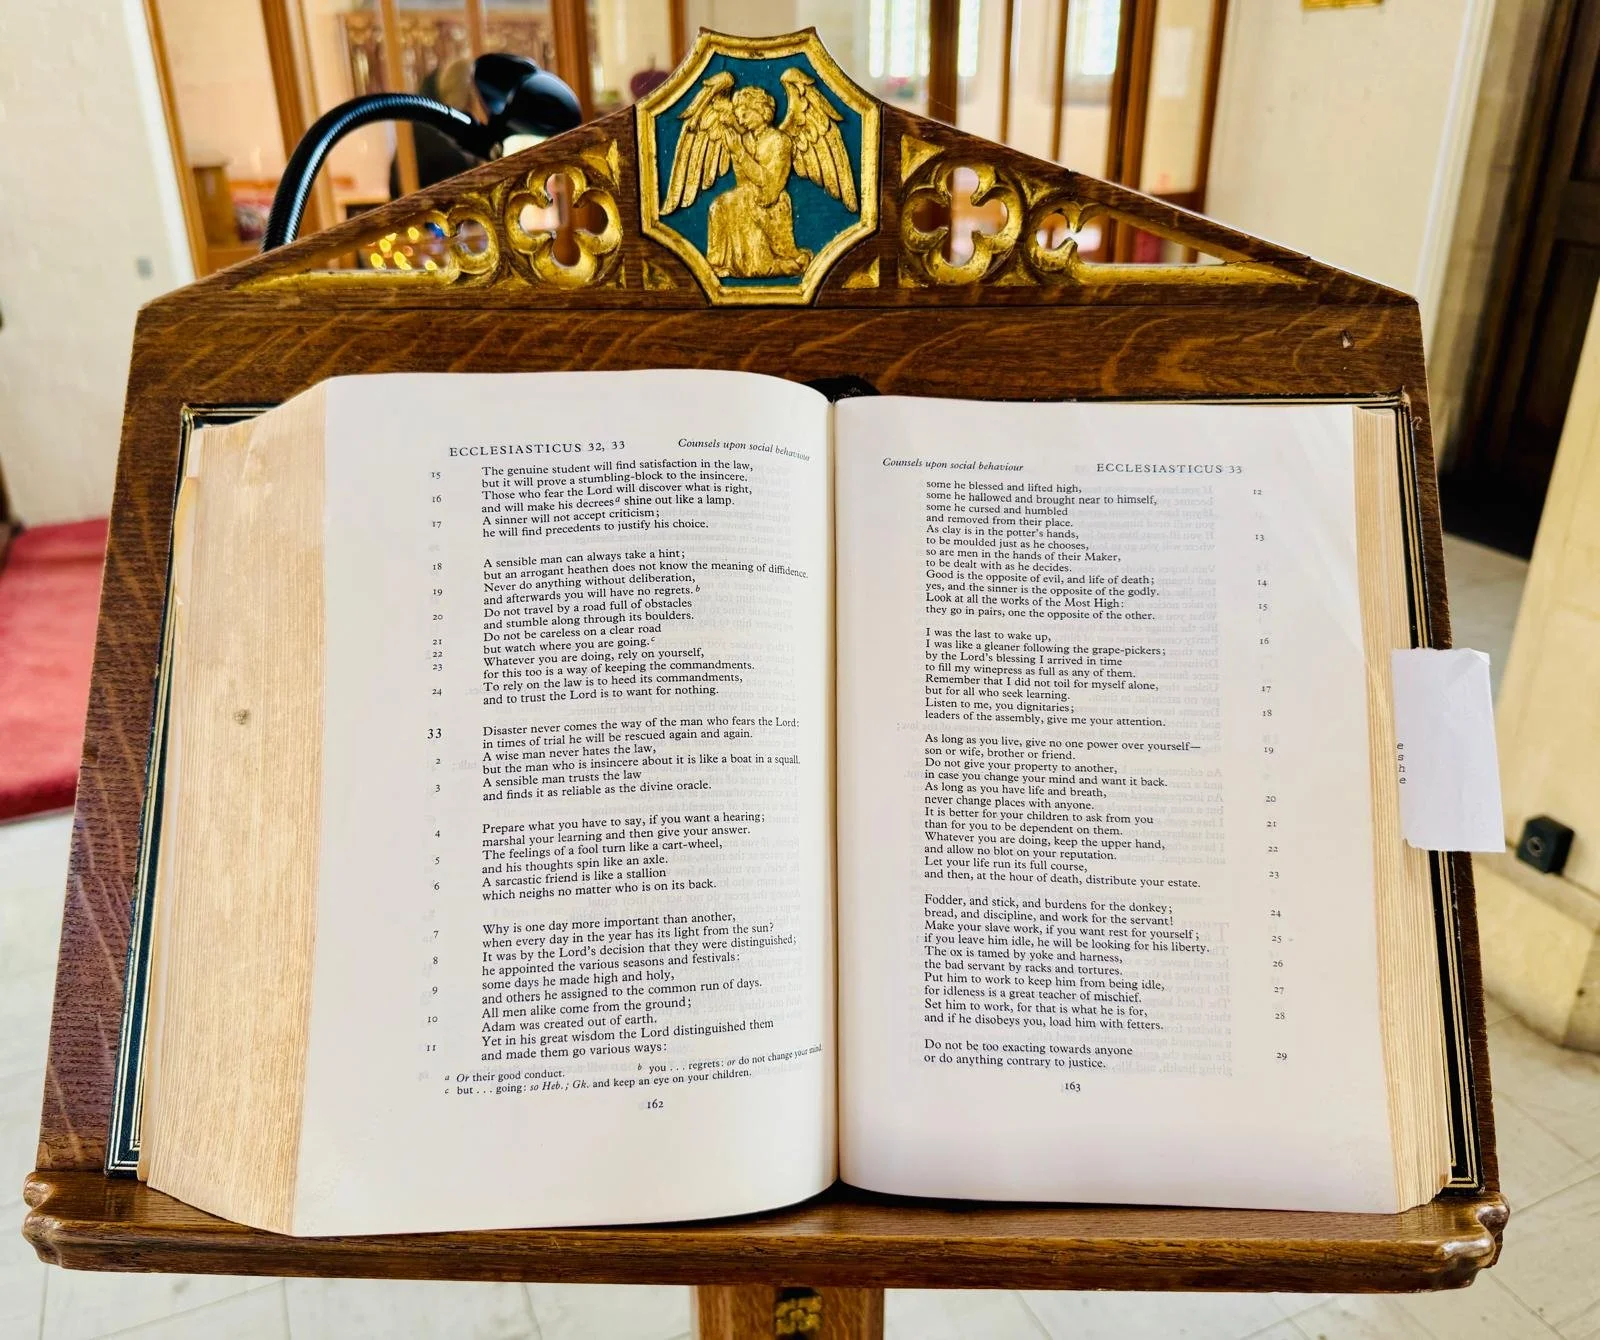 ECCLESIASTICUS 32, 33 Counsels upon social behaviour
15 The genuine student will find satisfaction in the law,
but it will prove a stumbling-block to the insincere.
16 Those who fear the Lord will discover what is right,
and will make his decrees a shine out like a lamp.
17 A sinner will not accept criticism;
he will find precedents to justify his choice.
18 A sensible man can always take a hint;
but an arrogant heathen does not know the meaning of diffidence.
19 Never do anything without deliberation,
and afterwards you will have no regrets. b
20 Do not travel by a road full of obstacles
and stumble along through its boulders.
21 Do not be careless on a clear road
22 but watch where you are going. c
23 Whatever you are doing, rely on yourself,
for this too is a way of keeping the commandments.
24 To rely on the law is to heed its commandments,
and to trust the Lord is to want for nothing.
33 Disaster never comes the way of the man who fears the Lord:
in times of trial he will be rescued again and again.
2 A wise man never hates the law,
but the man who is insincere about it is like a boat in a squall.
3 A sensible man trusts the law
and finds it as reliable as the divine oracle.
4 Prepare what you have to say, if you want a hearing;
marshal your learning and then give your answer.
5 The feelings of a fool turn like a cart-wheel,
and his thoughts spin like an axle.
6 A sarcastic friend is like a stallion
which neighs no matter who is on its back.
7 Why is one day more important than another,
when every day in the year has its light from the sun?
8 It was by the Lord's decision that they were distinguished;
he appointed the various seasons and festivals:
9 some days he made high and holy,
and others he assigned to the common run of days.
10 All men alike come from the ground;
Adam was created out of earth.
11 Yet in his great wisdom the Lord distinguished them
and made them go various ways:
a Or their good conduct. b you . . . regrets: or do not change your mind.
c but . . . going: so Heb.; Gk. and keep an eye on your children.
162
Counsels upon social behaviour ECCLESIASTICUS 33
some he blessed and lifted high, 12
some he hallowed and brought near to himself,
some he cursed and humbled
and removed from their place.
As clay is in the potter's hands, 13
to be moulded just as he chooses,
so are men in the hands of their Maker,
to be dealt with as he decides.
Good is the opposite of evil, and life of death; 14
yes, and the sinner is the opposite of the godly.
Look at all the works of the Most High: 15
they go in pairs, one the opposite of the other.
I was the last to wake up, 16
I was like a gleaner following the grape-pickers;
by the Lord's blessing I arrived in time
to fill my winepress as full as any of them.
Remember that I did not toil for myself alone, 17
but for all who seek learning.
Listen to me, you dignitaries; 18
leaders of the assembly, give me your attention.
As long as you live, give no one power over yourself— 19
son or wife, brother or friend.
Do not give your property to another,
in case you change your mind and want it back.
As long as you have life and breath, 20
never change places with anyone.
It is better for your children to ask from you 21
than for you to be dependent on them.
Whatever you are doing, keep the upper hand, 22
and allow no blot on your reputation.
Let your life run its full course, 23
and then, at the hour of death, distribute your estate.
Fodder, and stick, and burdens for the donkey; 24
bread, and discipline, and work for the servant!
Make your slave work, if you want rest for yourself; 25
if you leave him idle, he will be looking for his liberty.
The ox is tamed by yoke and harness, 26
the bad servant by racks and tortures.
Put him to work to keep him from being idle, 27
for idleness is a great teacher of mischief.
Set him to work, for that is what he is for, 28
and if he disobeys you, load him with fetters.
Do not be too exacting towards anyone 29
or do anything contrary to justice.
163
e
s
h
e